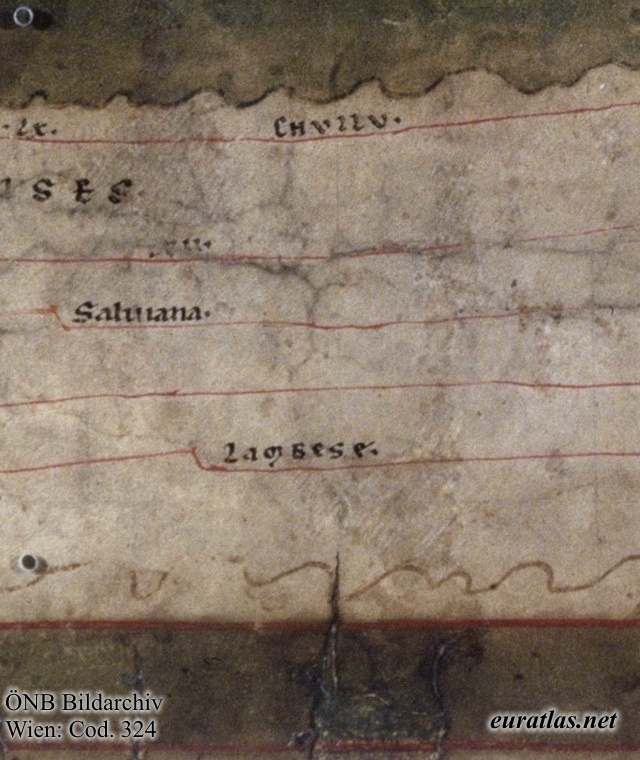 CHVLLV.
SES
Saluiana.
Lambese.
ÖNB Bildarchiv
Wien: Cod. 324
euratlas.net